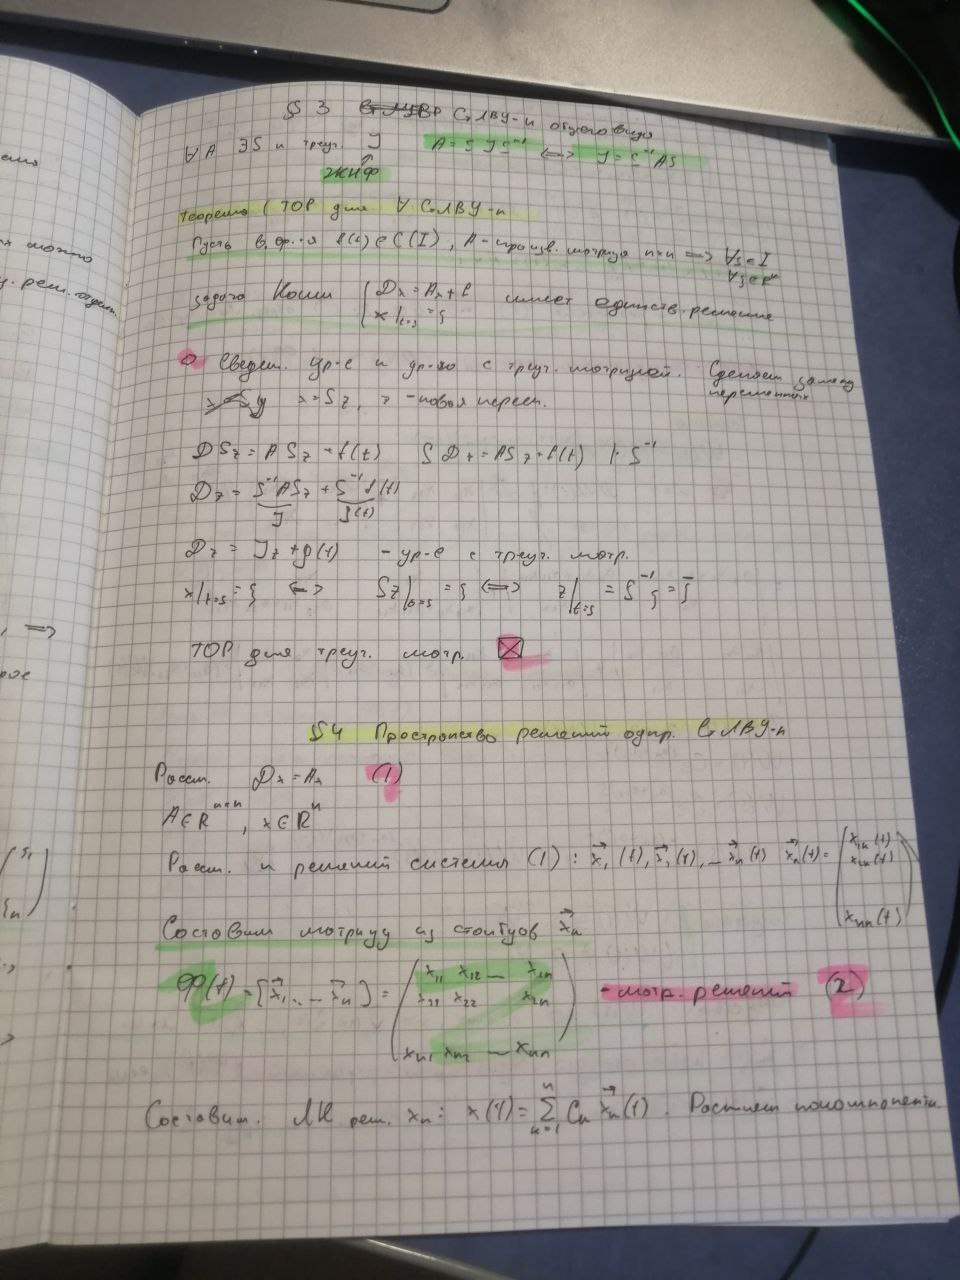 § 3 СтЛВУ-и общего вида
∀ A ∃S и треуг. J A = S J S⁻¹ ⟺ J = S⁻¹AS
ЖНФ
Теорема (ТОР для ∀ СтЛВУ-и
Пусть в.ф.-я f(t) ∈ C(I), A - произв. матрица n×n ⟹ ∀s ∈ I
∀ξ ∈ Rⁿ
задача Коши { Dx = Ax + f имеет единств. решение
x|t=s = ξ
Сведем. ур-е к ур-ю с треуг. матрицей. Сделаем замену
x = Sz, z - новая перем. переменных
DSz = ASz + f(t) S Dz = ASz + f(t) |· S⁻¹
Dz = S⁻¹ASz + S⁻¹f(t)
J g(t)
Dz = Jz + g(t) - ур-е с треуг. матр.
x|t=s = ξ ⟺ Sz|t=s = ξ ⟺ z|t=s = S⁻¹ξ = ξ̄
ТОР для треуг. матр. ☒
§4 Пространство решений одпр. СтЛВУ-и
Рассм. Dx = Ax (1)
A ∈ Rⁿˣⁿ, x ∈ Rⁿ
Рассм. n решений системы (1) : x⃗₁(t), x⃗₂(t), … x⃗n(t) x⃗n(t) = (x₁n(t)
x₂n(t)
xnn(t))
Составим матрицу из столбцов x⃗n
Ф(t) = [x⃗₁ … x⃗n] = (x₁₁ x₁₂ … x₁n
x₂₁ x₂₂ x₂n - матр. решений (2)
xn₁ xn₂ … xnn)
Составим. ЛК реш. xn: x(t) = ∑ⁿk=1 Cn x⃗n(t).